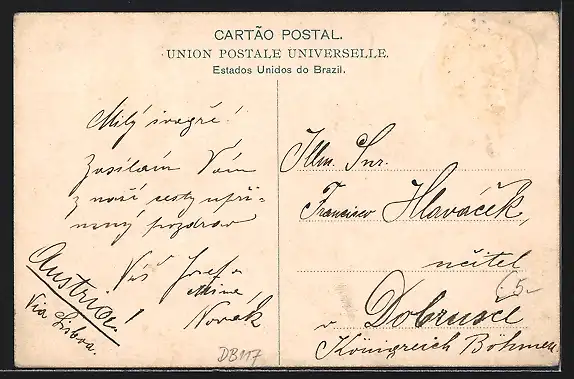 CARTÃO POSTAL.
UNION POSTALE UNIVERSELLE.
Estados Unidos do Brazil.
Milý švagře!
Zasílám Vám
z naší cesty upří-
mný pozdrav
Váš Josef a
Mine
Novák
Austria!
Via Lisboa.
Illm. Snr.
Francisco Hlaváček,
učitel
v Dobrušce
Königreich Böhmen
5-
DB117